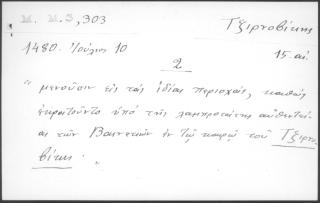 M. M. 3, 303 Τζιρνοβίκης
1480. Ἰούλιος 10 15 αἰ.
2
"μενοῦσιν εἰς τάς ἰδίας περιοχάς, καθώς
ἐκρατοῦντο ὑπό τῆς λαμπροτάτης αὐθεντεί-
ας τῶν Βενετικῶν ἐν τῷ καιρῷ τοῦ Τζιρνο-
βίκη."